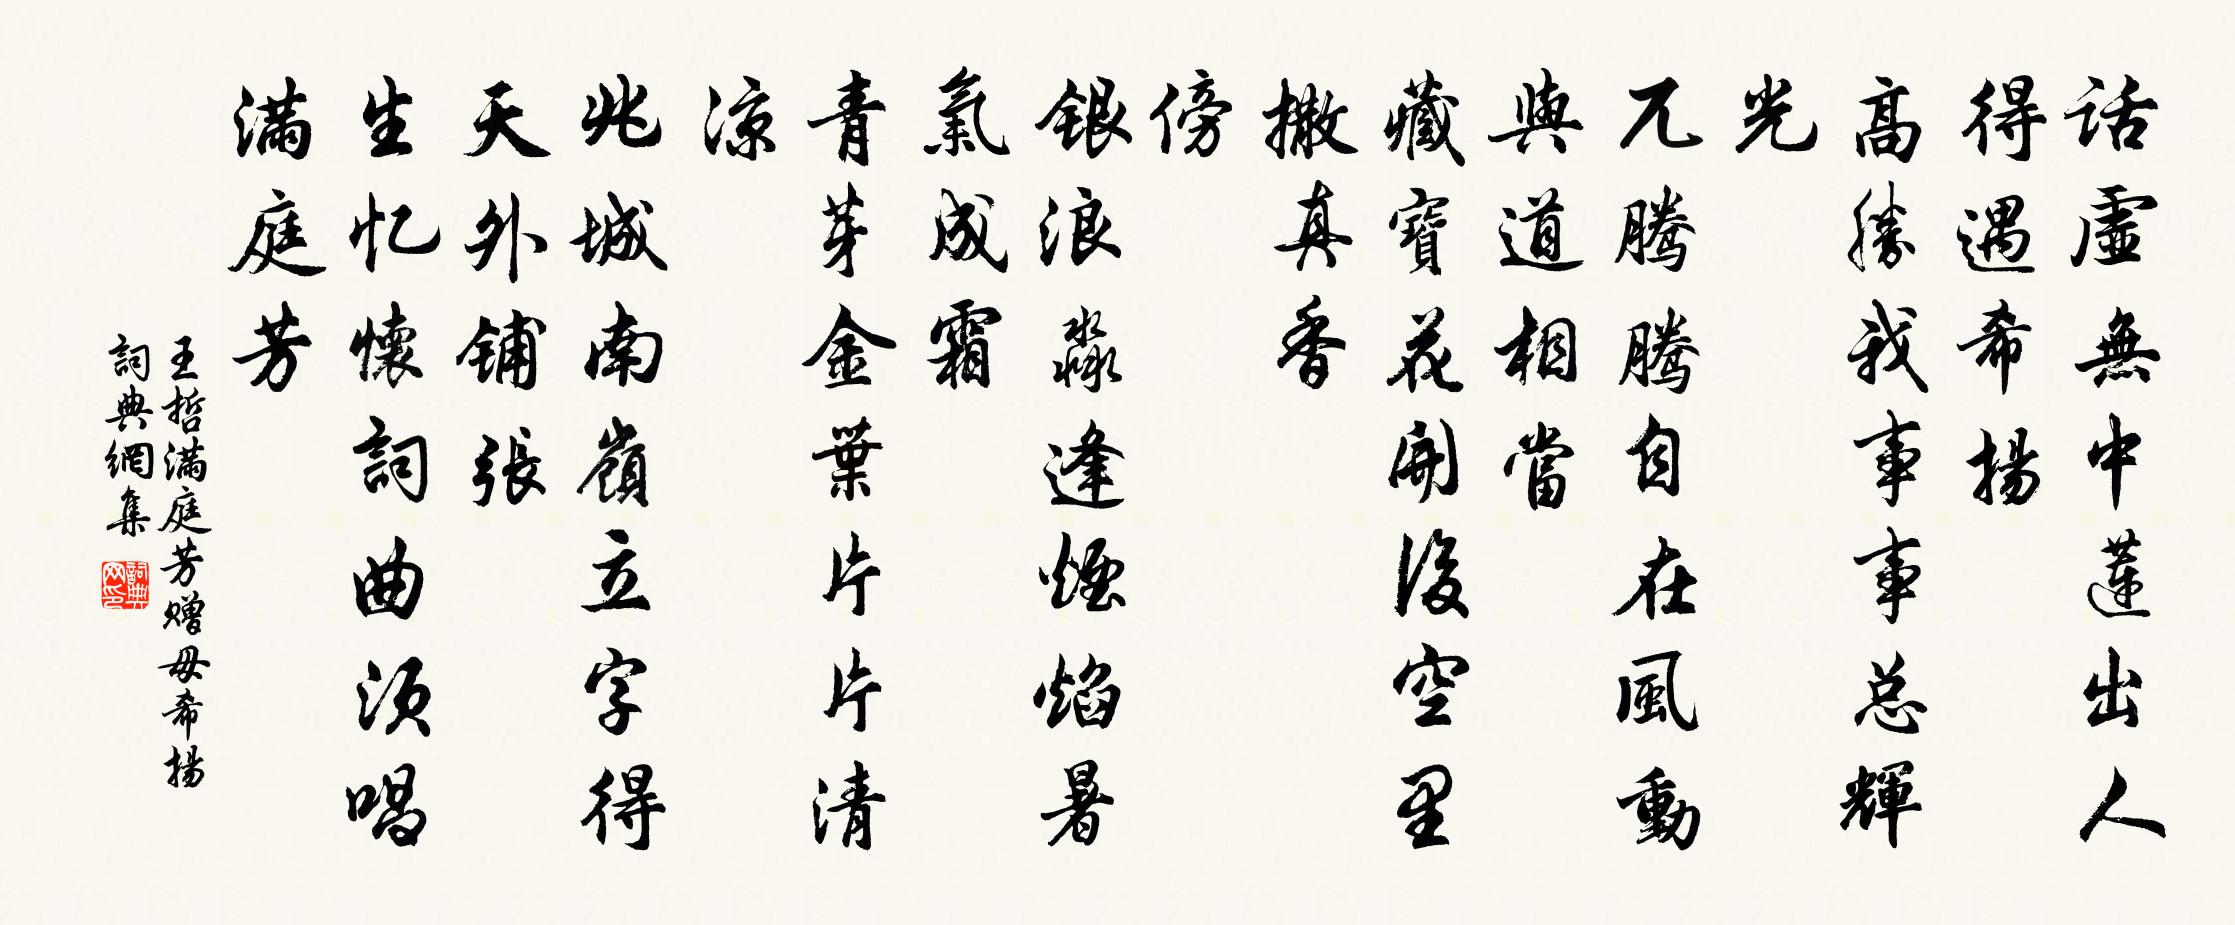 话虛無中蓮出人
得遇希揚
高勝我事事总輝
光
兀騰騰自在風動
與道相當
藏寶花開後空里
撒真香
傍
銀浪淼逢煙焰暑
氣成霜
青芽金葉片片清
凉
兆城南嶺立字得
天外铺張
生忆懷詞曲须唱
满庭芳
王哲满庭芳赠毋希揚
詞典網集
詞典网印